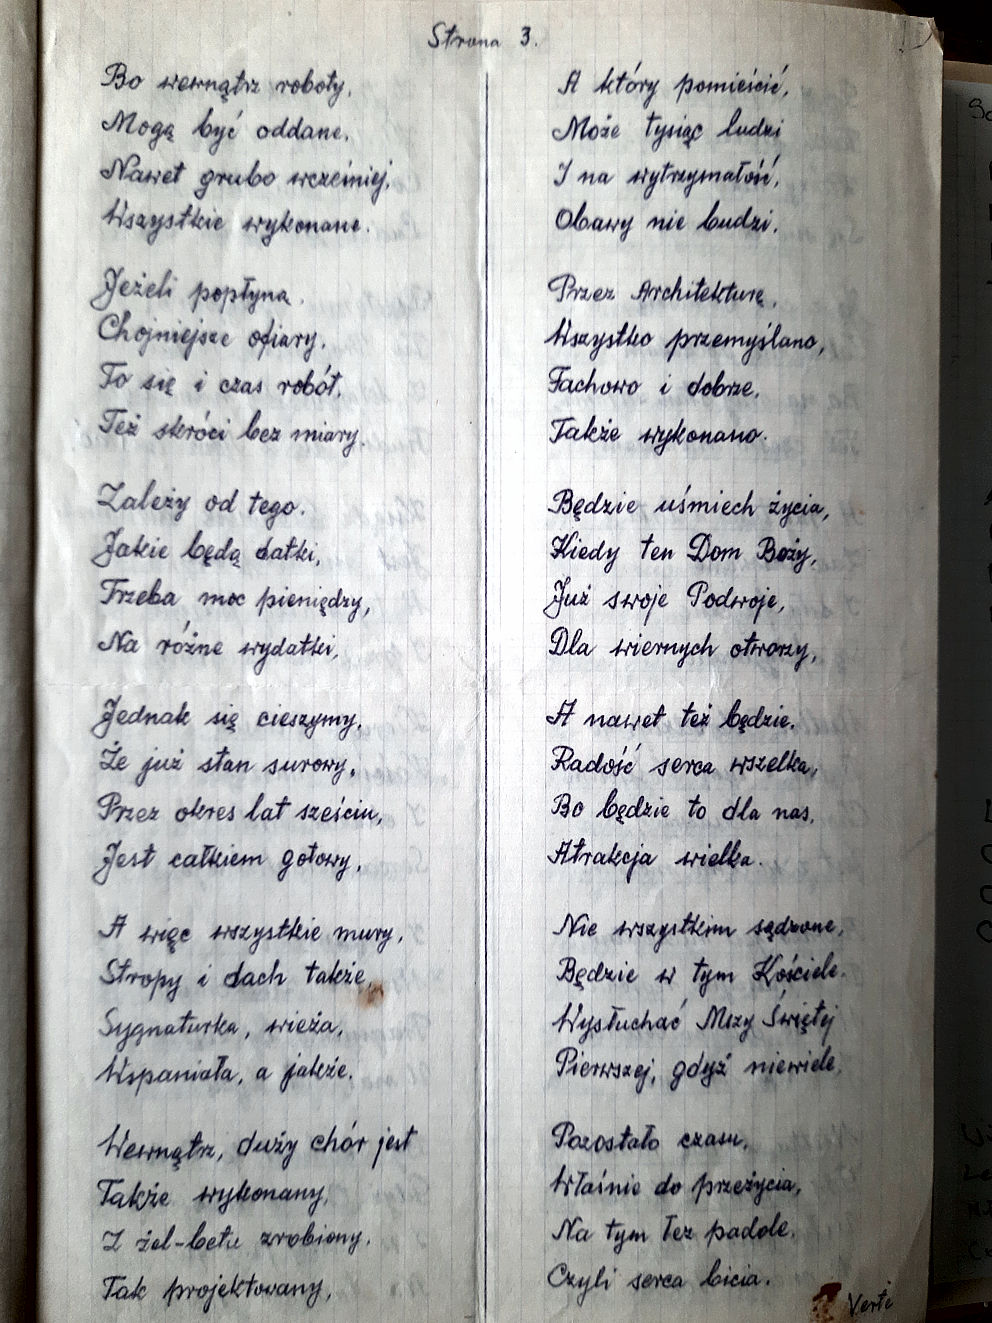 Strona 3.
Bo wewnątrz roboty,
Mogą być oddane,
Nawet grubo wcześniej,
Wszystkie wykonane.
Jeżeli popłyną.
Chojniejsze ofiary,
To się i czas robót,
Też skróci bez miary.
Zależy od tego.
Jakie będą datki,
Trzeba moc pieniędzy,
Na różne wydatki,
Jednak się cieszymy,
Że już stan surowy,
Przez okres lat sześciu,
Jest całkiem gotowy,
A więc wszystkie mury,
Stropy i dach także,
Sygnaturka, wieża,
Wspaniała, a jakże.
Wewnątrz, duży chór jest
Także wykonany,
Z żel-betu zrobiony,
Tak projektowany,
A który pomieścić,
Może tysiąc ludzi
I na wytrzymałość,
Obawy nie budzi,
Przez Architekturę,
Wszystko przemyślano,
Fachowo i dobrze,
Także wykonano.
Będzie uśmiech życia,
Kiedy ten Dom Boży,
Już swoje Podwoje,
Dla wiernych otworzy,
A nawet też będzie,
Radość serca wszelka,
Bo będzie to dla nas,
Atrakcja wielka.
Nie wszystkim sądzone,
Będzie w tym Kościele.
Wysłuchać Mszy Świętej
Pierwszej, gdyż niewiele,
Pozostało czasu,
Właśnie do przeżycia,
Na tym łez padole,
Czyli serca bicia.
Verte